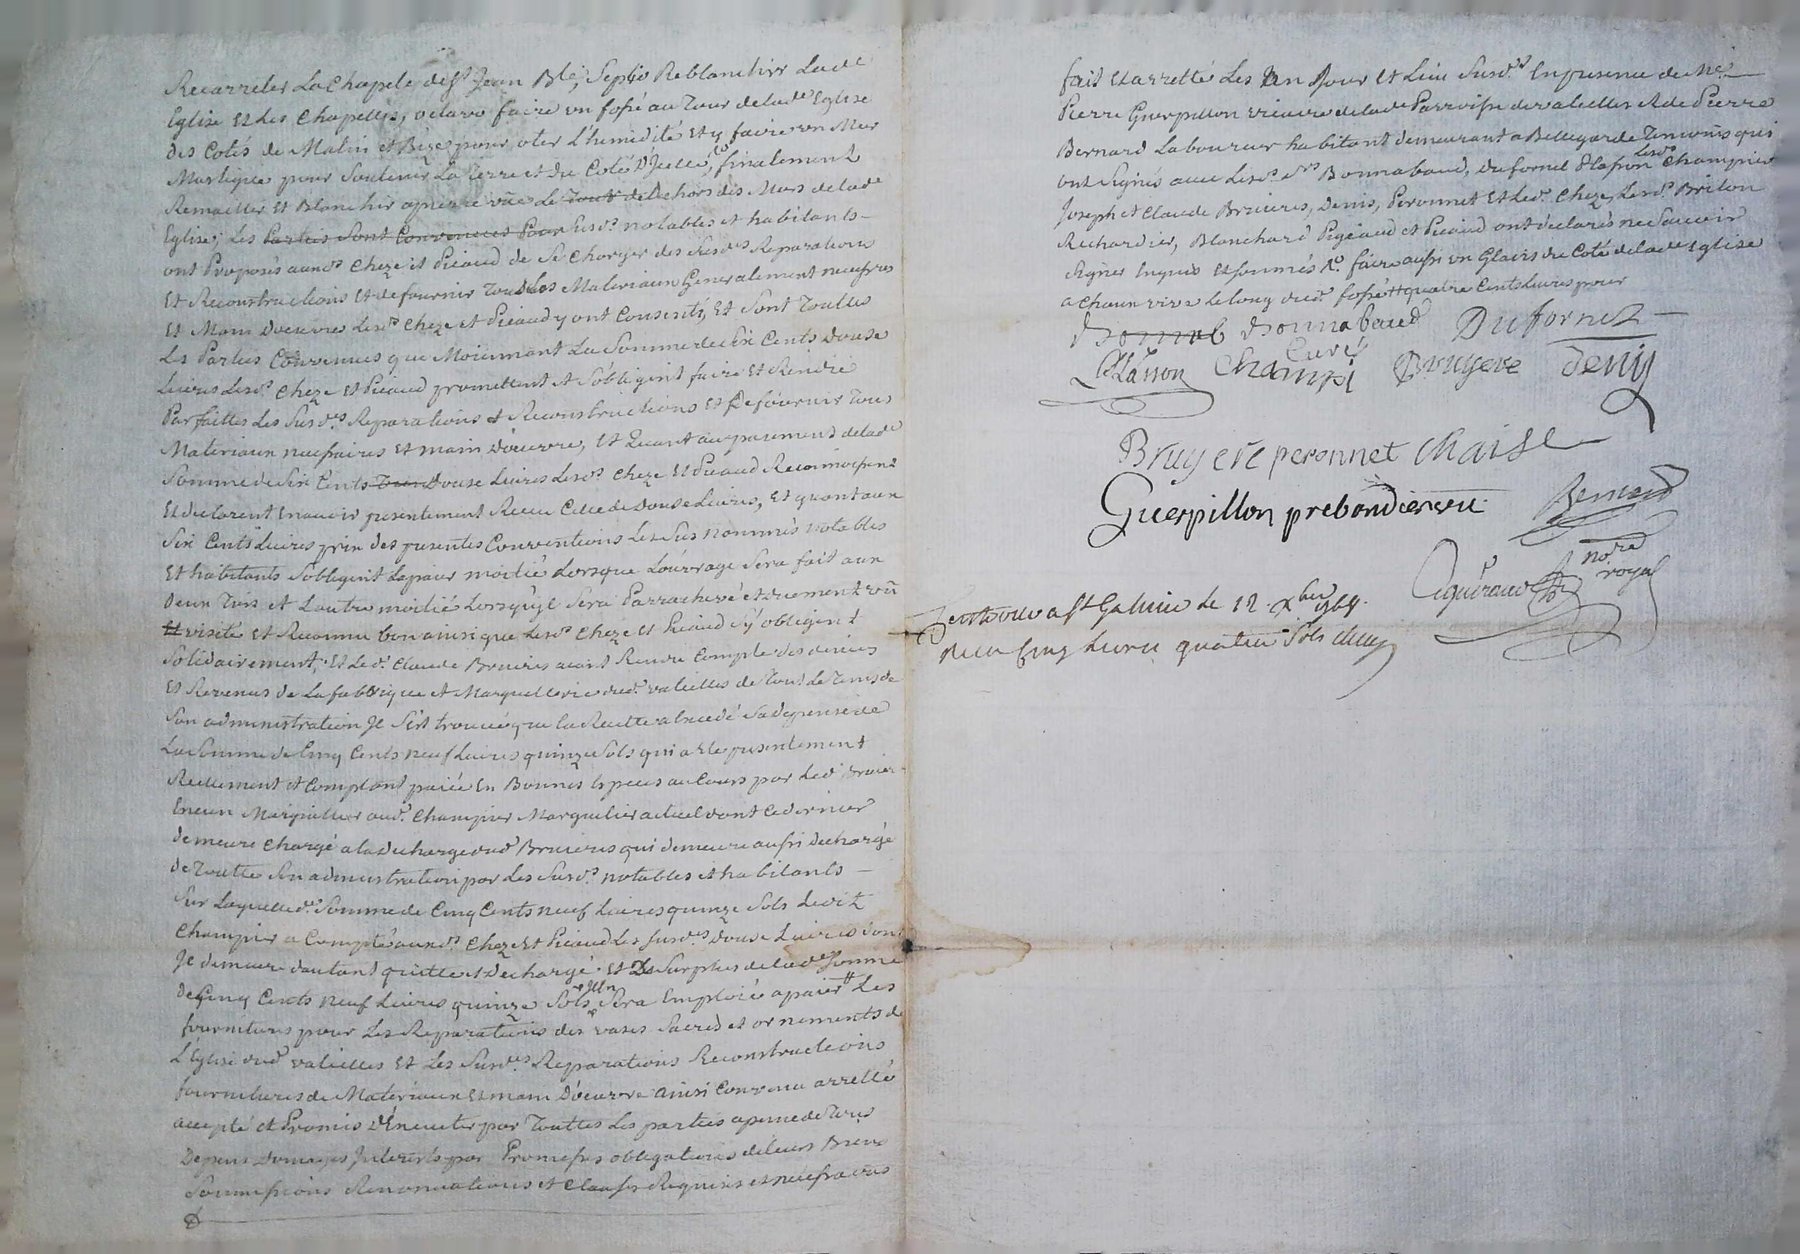 Recarreler La Chapele de St Jean Bte, Septio Reblanchir Lade
Eglise Et Les Chapelles, oclave faire un fossé au Tour delade Eglise
des Cotés de Matin et Bize pour oter L'humidité Et y faire un Mur
pour Soutenir La Terre et du Coté finalement
Remailler Et Blanchir apierre vûe Le Tout deDehors des Murs delade
Eglise; Les Parties Sont Convenues Pour Susds notables et habitants
ont Proposés auxds Cheze et Picaud de Se Charger des Susdes Reparations
Et Reconstructions Et de fournir Tous Les Materiaux Generalement necessres
Et Main Doeuvre Lesds Cheze et Picaud y ont Consentis, Et Sont Toutes
Les Parties Convenues que Moiennant La Somme de Six Cents Douse
Livres Lesds Cheze Et Picaud promettent et S'obligent faire Et Rendre
Parfaittes Les Susdes Reparations et Reconstructions Et De fournir Tous
Materiaux necessaires Et main D'oeuvre, Et Quant au paiement delade
Somme de Six Cents Douse Livres Lesds Cheze Et Picaud Reconnoissent
Et declarent En avoir presentement Recu Celle de Douse Livres, Et quant aux
Six Cents Livres prix des presentes Conventions Les Sus nommés notables
Et habitants S'obligent La paier moitié Lorsque L'ouvrage Sera fait aux
Deux Tiers et L'autre moitié Lorsqu'yl Sera Parrachevé et duement vû
Et visité Et Reconnu bon ainsi que Lesds Cheze et Picaud S'y obligent
Solidairement; Et Led. Claude Bruieres aiant Rendu Compte des deniers
Et Revenus de La fabrique et Marguillerie dud. valeilles de Tout Le Tems de
Son administration Jl S'est trouvé que la Recette a Excedé Sa depense de
La Somme de Cinq Cents neuf Livres quinze Sols qui a Eté presentement
Reellement et Comptant paiée En Bonnes Especes au Cours par Led. Bruier
Encien Marguillier aud. Champier Marguilier actuel dont Ce dernier
demeure Chargé a la decharge dud Bruieres qui demeure aussi dechargé
de Toutte Son administration par Les Susds notables et habitants
Sur Laquelle de Somme de Cinq Cents neuf Livres quinze Sols Ledit
Champier a Compté auxds Cheze Et Picaud Les Susdes Douse Livres dont
Jl demeure dautant quitte et Dechargé. Et Le Surplus delade Somme
de Cinq Cents neuf Livres quinze Sols, Sera Emploié a paier Les
fournitures pour Les Reparations des vases Sacrés et ornements de
L'Eglise dud valeilles Et Les Susdes Reparations Reconstructions
fournitures de Materiaux Et main D'oeuvre ainsi Convenu arretté
accepté et Promis D'Executer par Touttes Les parties apeine de Tous
Depens Domages Jnterests par Promesses obligations de leurs Biens
Soumissions Renonciations et Clauses Requises et necessaires
fait Et arretté Les An Jour Et Lieu Susds En presence de Me
Pierre Guerpillon vicaire delade Parroisse de valeilles Et de Pierre
Bernard Laboureur habitant demeurant a Bellegarde Temoins qui
ont Signés avec Lesds Srs Bonnabaud, Dufornel & Lafson Lesds Champier
Joseph et Claude Bruieres, Denis, Peronnet Et Led. Cheze, Lesds Briton
Richardier, Blanchard Pigeaud et Picaud ont déclarés ne Scavoir
Signer Enquis Et Sommés Ro. faire aussi un Glacis du Coté delade Eglise
a Chaux vive le long dud. fossé quatre Cents Livres pour
Bonnab Bonnabaud Dufornel
Curé
Lasson Champié Bruyere deniy
Bruyere peronnet Chaise
Guerpillon prebandier Bernard
nore
royal
a St Galmier le 12 xbre
Recu Cinq Livres quatre Sols